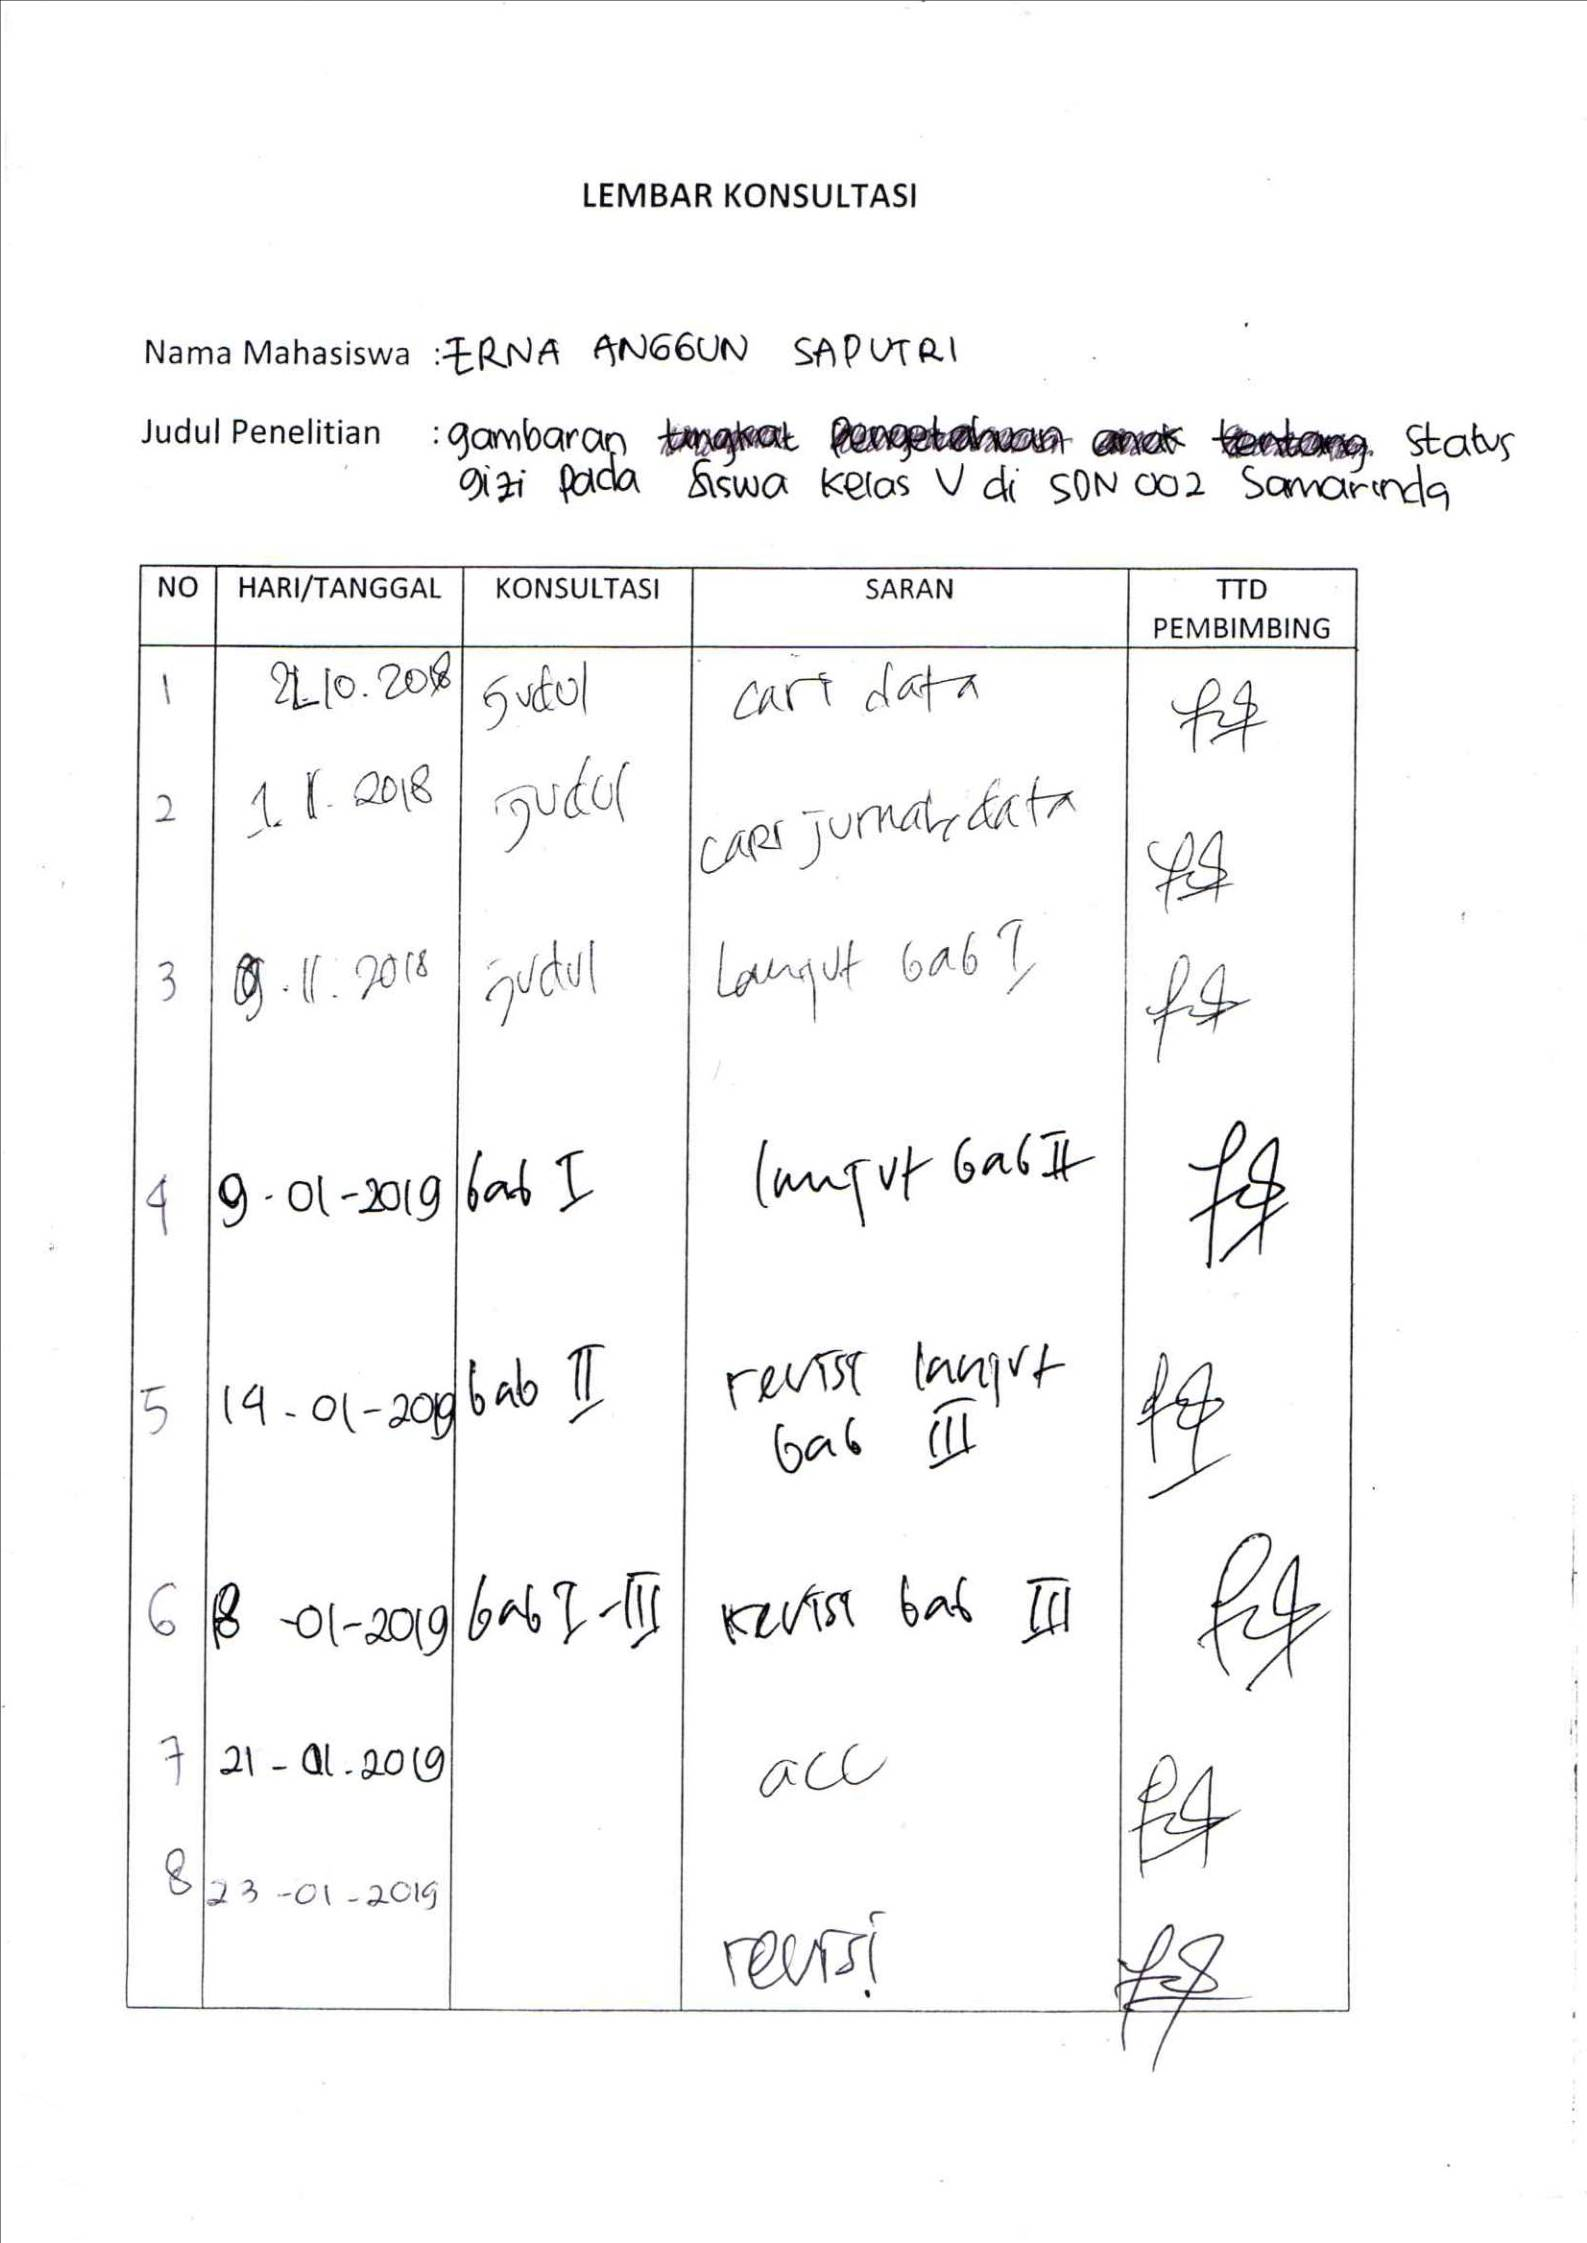 LEMBAR KONSULTASI
Nama Mahasiswa : ERNA ANGGUN SAPUTRI
Judul Penelitian : gambaran tingkat Pengetahuan anak tentang Status
gizi pada siswa kelas V di SDN 002 Samarinda
NO HARI/TANGGAL KONSULTASI SARAN TTD
PEMBIMBING
1 judul cari data
2 1. 11. 2018 judul cari jurnal, data
3 9. 11. 2018 judul Lanjut bab I
4 9-01-2019 bab I lanjut bab II
5 14-01-2019 bab II revisi lanjut
bab III
6 18-01-2019 bab I-III revisi bab III
7 21-01-2019 acc
8 23-01-2019
revisi